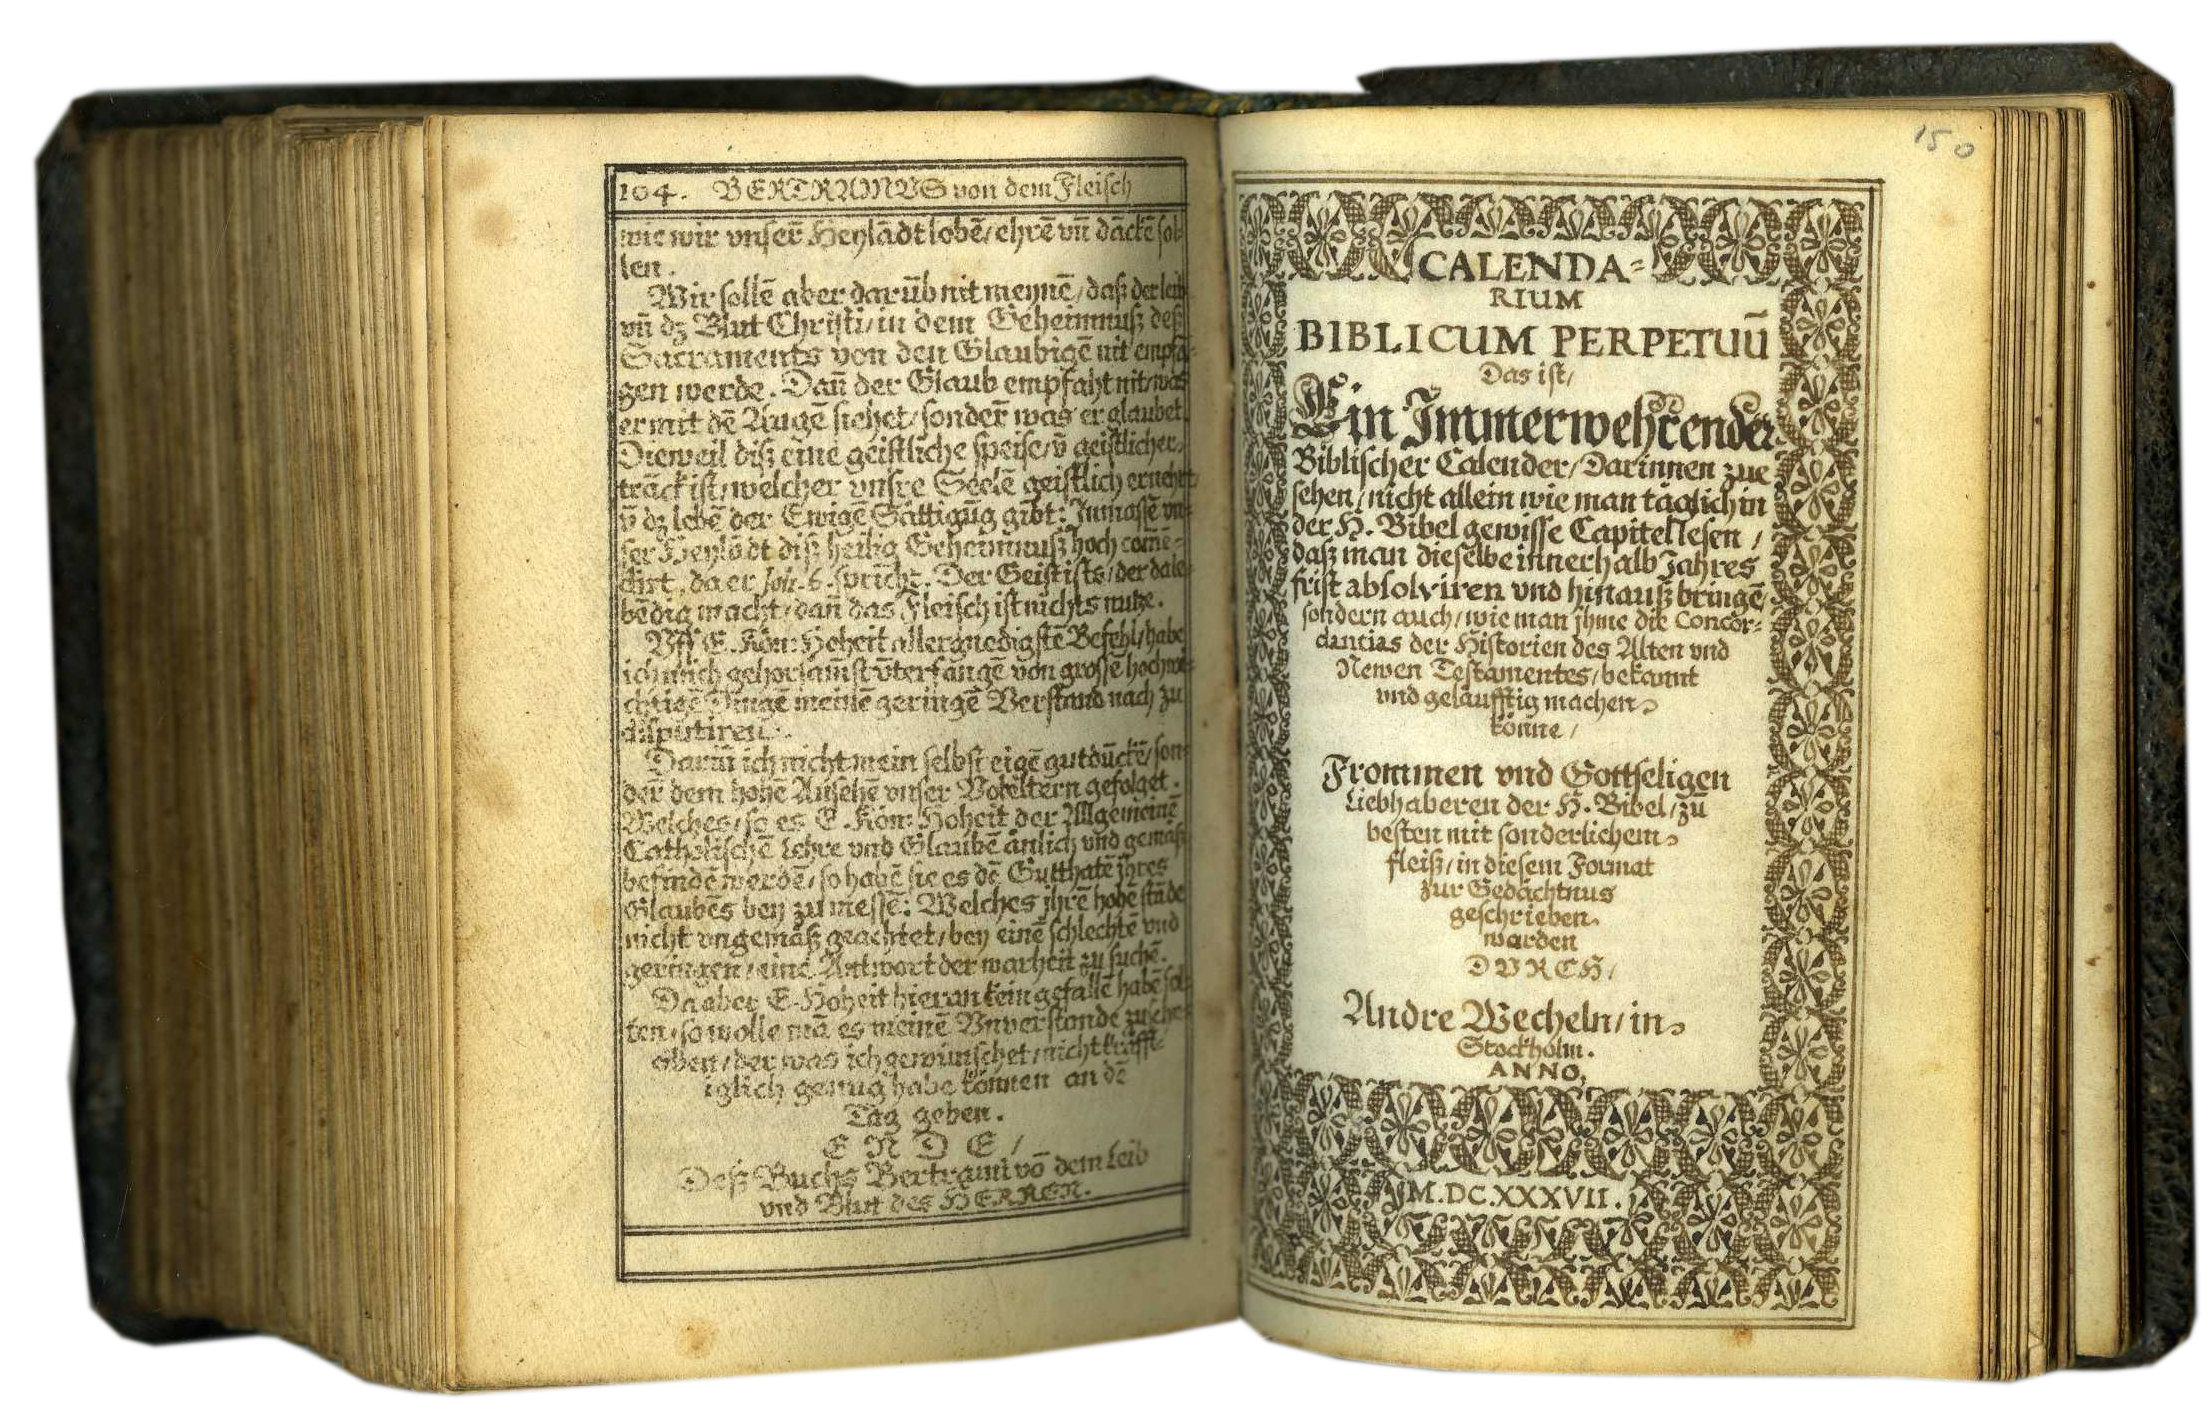 104. BERTRAMVS von dem Fleisch
wie wir vnser Heylādt lobē/ehrē vn̄ dāckē sol-
len.
Wir sollē aber darūb nit meynē/daß der leib
vn̄ dz Blut Christi/in dem Geheimnuß deß
Sacraments von den Glaubigē nit empfā-
gen werde. Dan̄ der Glaub empfaht nit/was
er mit dē Augē siehet/sonder̄ was er glaubet.
Dieweil diß eine geistliche speise/v̄ geistlicher
trāck ist/welcher vnsre Seelē geistlich ernehrt
v̄ dz lebē der Ewigē Sättigūg gibt: Inmassē vn-
ser Heylādt diß heilig Geheimnuß hoch com̄ē-
dirt, da er Joh. 6. spricht. Der Geist ists/der da le-
bēdig macht/dan̄ das Fleisch ist nichts nutze.
Vff E. Kön: Hoheit allergnedigstē Befehl/habe
ich mich gehorsamst vnterfangē von grossē hochwi-
chtigē Dingē meinē geringē Verstand nach zu
disputiren.
Darin̄ ich nicht mein selbst eigē gutdūckē/son-
der̄ dem hohē Ansehē vnser Voreltern gefolget.
Welches/so es E. Kön: Hoheit der Allgemeinē
Catholischē Lehre vnd Glaubē änlich vnd gemäß
befindē werdē/so habē sie es dē Gutthatē jhres
Glaubēs bey zu messē: Welches jhrē hohē stāde
nicht vngemäß geachtet/bey einē schlechtē vnd
geringen/eine Antwort der warheit zu suchē.
Da aber E. Hoheit hieran kein gefallē habē sol-
ten/so wolle mā es meinē Vnverstande zuschre-
iben/der was ich gewünschet/nicht kräfft-
iglich genug habe können an dē
Tag geben.
E N D E /
Deß Buchs Bertrami vō dem Leib
vnd Blut des HERREN.
150
CALENDA-
RIUM
BIBLICUM PERPETUŪ
Das ist/
Ein Immerwehrender
Biblischer Calender/Darinnen zue
sehen/nicht allein wie man täglich in
der H. Bibel gewisse Capitel lesen/
daß man dieselbe innerhalb Jahres
frist absolviren vnd hinauß bringē/
sondern auch/wie man jhme die Concor-
dantias der Historien des Alten vnd
Newen Testamentes/bekannt
vnd geläufftig machen
könne/
Frommen vnd Gottseligen
Liebhaberen der H. Bibel/zū
besten mit sonderlichem
fleiß/in diesem Format
zur Gedächtnus
geschrieben
warden
DVRCH/
Andre Wecheln/in
Stockholm.
ANNO,
M.DC.XXXVII.